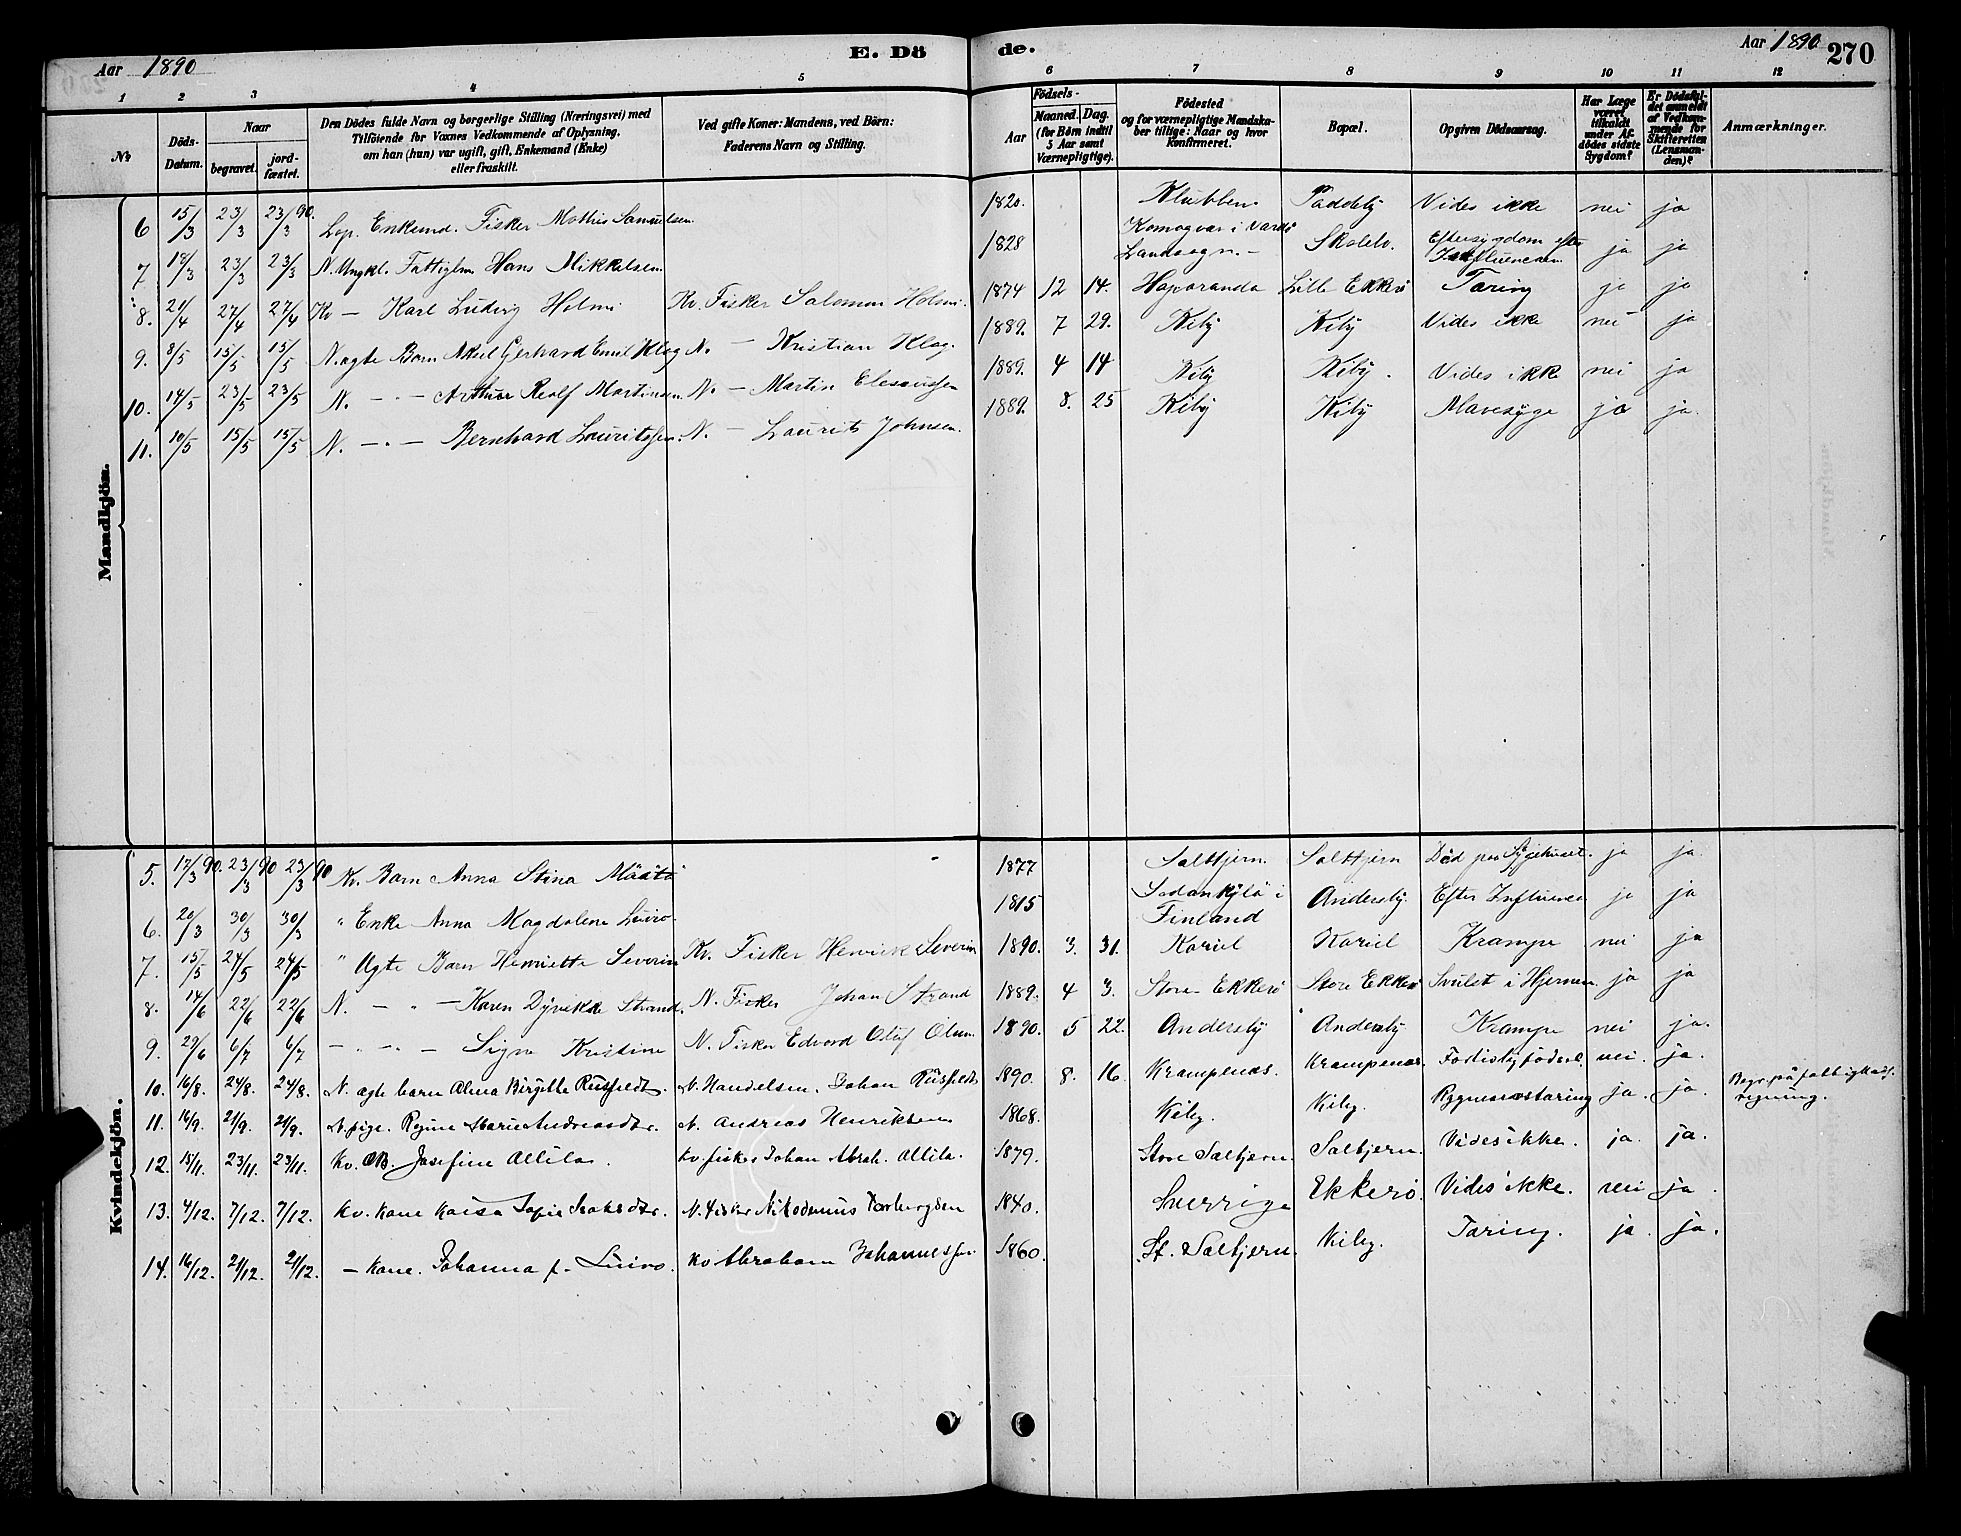 Aar 1890
E. Dö
de.
Aar 1890
270
1 2 3 4 5 6 7 8 9 10 11 12
No
Döds-Datum.
Naar
begravet.
jord-fæstet.
Den Dödes fulde Navn og borgerlige Stilling (Næringsvei) med
Tilföiende for Voxnes Vedkommende af Oplysning,
om han (hun) var ugift, gift, Enkemand (Enke)
eller fraskilt.
Ved gifte Koner: Mandens, ved Børn:
Faderens Navn og Stilling.
Födsels-
Aar
Maaned. Dag.
(for Børn indtil
5 Aar samt
Værnepligtige).
Födested
og for værnepligtige Mandska-
ber tillige: Naar og hvor
konfirmeret.
Bopæl.
Opgiven Dödsaarsag.
Har Læge
været
tilkaldt
under Af-
dödes sidste
Sygdom?
Er Dödsfal-
det anmeldt
af Vedkom-
mende for
Skifteretten
(Lensman-
den)?
Anmærkninger.
Mandkjön.
6 15/3 23/3 23/3 90. Lap. Enkemd. Fisker Mathis Samuelsen 1820. Klubben Paddeby Vides ikke nei ja
7 18/3 23/3 23/3 N. Ungkl. Fattiglm Hans Mikkelsen 1828 Komagvær i Vardö Landsogn. Skaleby. Eftersygdom efter Influencen ja ja
8. 21/4 27/4 27/4 Kv — Karl Ludvig Holm Kv. Fisker Salomon Holm 1874 12 14. Haparanda Lille Ekkerö Tæring ja ja
9. 8/5 15/5 15/5 N. ægte Barn Aksel Gerhard Emil Klog N. — Kristian Klog. 1889. 7 29. Kiby Kiby Vides ikke nei ja
10. 14/5 23/5 23/5 N. — " — Arthur Rolf Martinsen N. — Martin Elesæussen 1889. 4 14 Kiby Kiby. Vides ikke nei ja
11. 10/5 15/5 15/5 N. — " — Bernhard Lauritssen. N. — Laurits Johnsen. 1889. 8. 25 Kiby Kiby Mavesyge ja ja.
Kvindekjön.
5. 17/3 90. 23/3 90 23/3 90 Kv. Barn Anna Stina Määttö 1877 Saltjern. Saltjern Död paa Sygehuset. ja ja.
6. 20/3 30/3 30/3 " Enke Anna Magdalena Luiro 1815 Sodankylä i Finland Andersby. Efter Influence ja ja
7. 15/5 24/5 24/5 " Ægte Barn Henriette Severin Kv. Fisker Henrik Severin 1890. 3. 31. Kariel Kariel Krampe nei ja
8. 14/6 22/6 22/6 N. — " — Karen Dyvikke Strand. N. Fisker Johan Strand 1889. 4 3. Store Ekkerö Store Ekkerö Svulst i Hjernen. ja ja
9. 29/6 6/7 6/7 — " — " — Signe Kristine N. Fisker Edvard Oluf Olsen 1890. 5 22. Andersby Andersby Krampe nei ja.
10. 16/8. 24/8. 24/8. N. ægte barn Alma Birgitte Rusfeldt. N. Handelsm. Johan Rusfeldt 1890. 8. 16. Krampenæs. Krampenæs. Fortidlig födsel. nei. ja.
11. 16/9. 21/9. 21/9. N. pige. Regine Marie Andreasdtr. N. Andreas Henriksen 1868. Kiby. Kiby. Rygmarvstæring ja. ja. Begr. på fattigkass. regning.
12. 15/11. 23/11. 23/11. Kv. B. Josefine Allila. Kv. fisker Johan Abrah. Allila. 1879. Store Salttjern. Salttjern. Vides ikke. ja. ja.
13. 4/12. 7/12. 7/12. Kv. Kone Kaisa Sofie Isaksdtr. N. Fisker Nikodemus Torbergsen 1840. Sverrige Ekkerö. Vides ikke. nei ja.
14. 16/12. 21/12. 21/12. — Kone. Johanna f. Luiro. Kv Abraham Johannessen 1860. St. Salttjern. Kiby. Tæring. ja. ja.